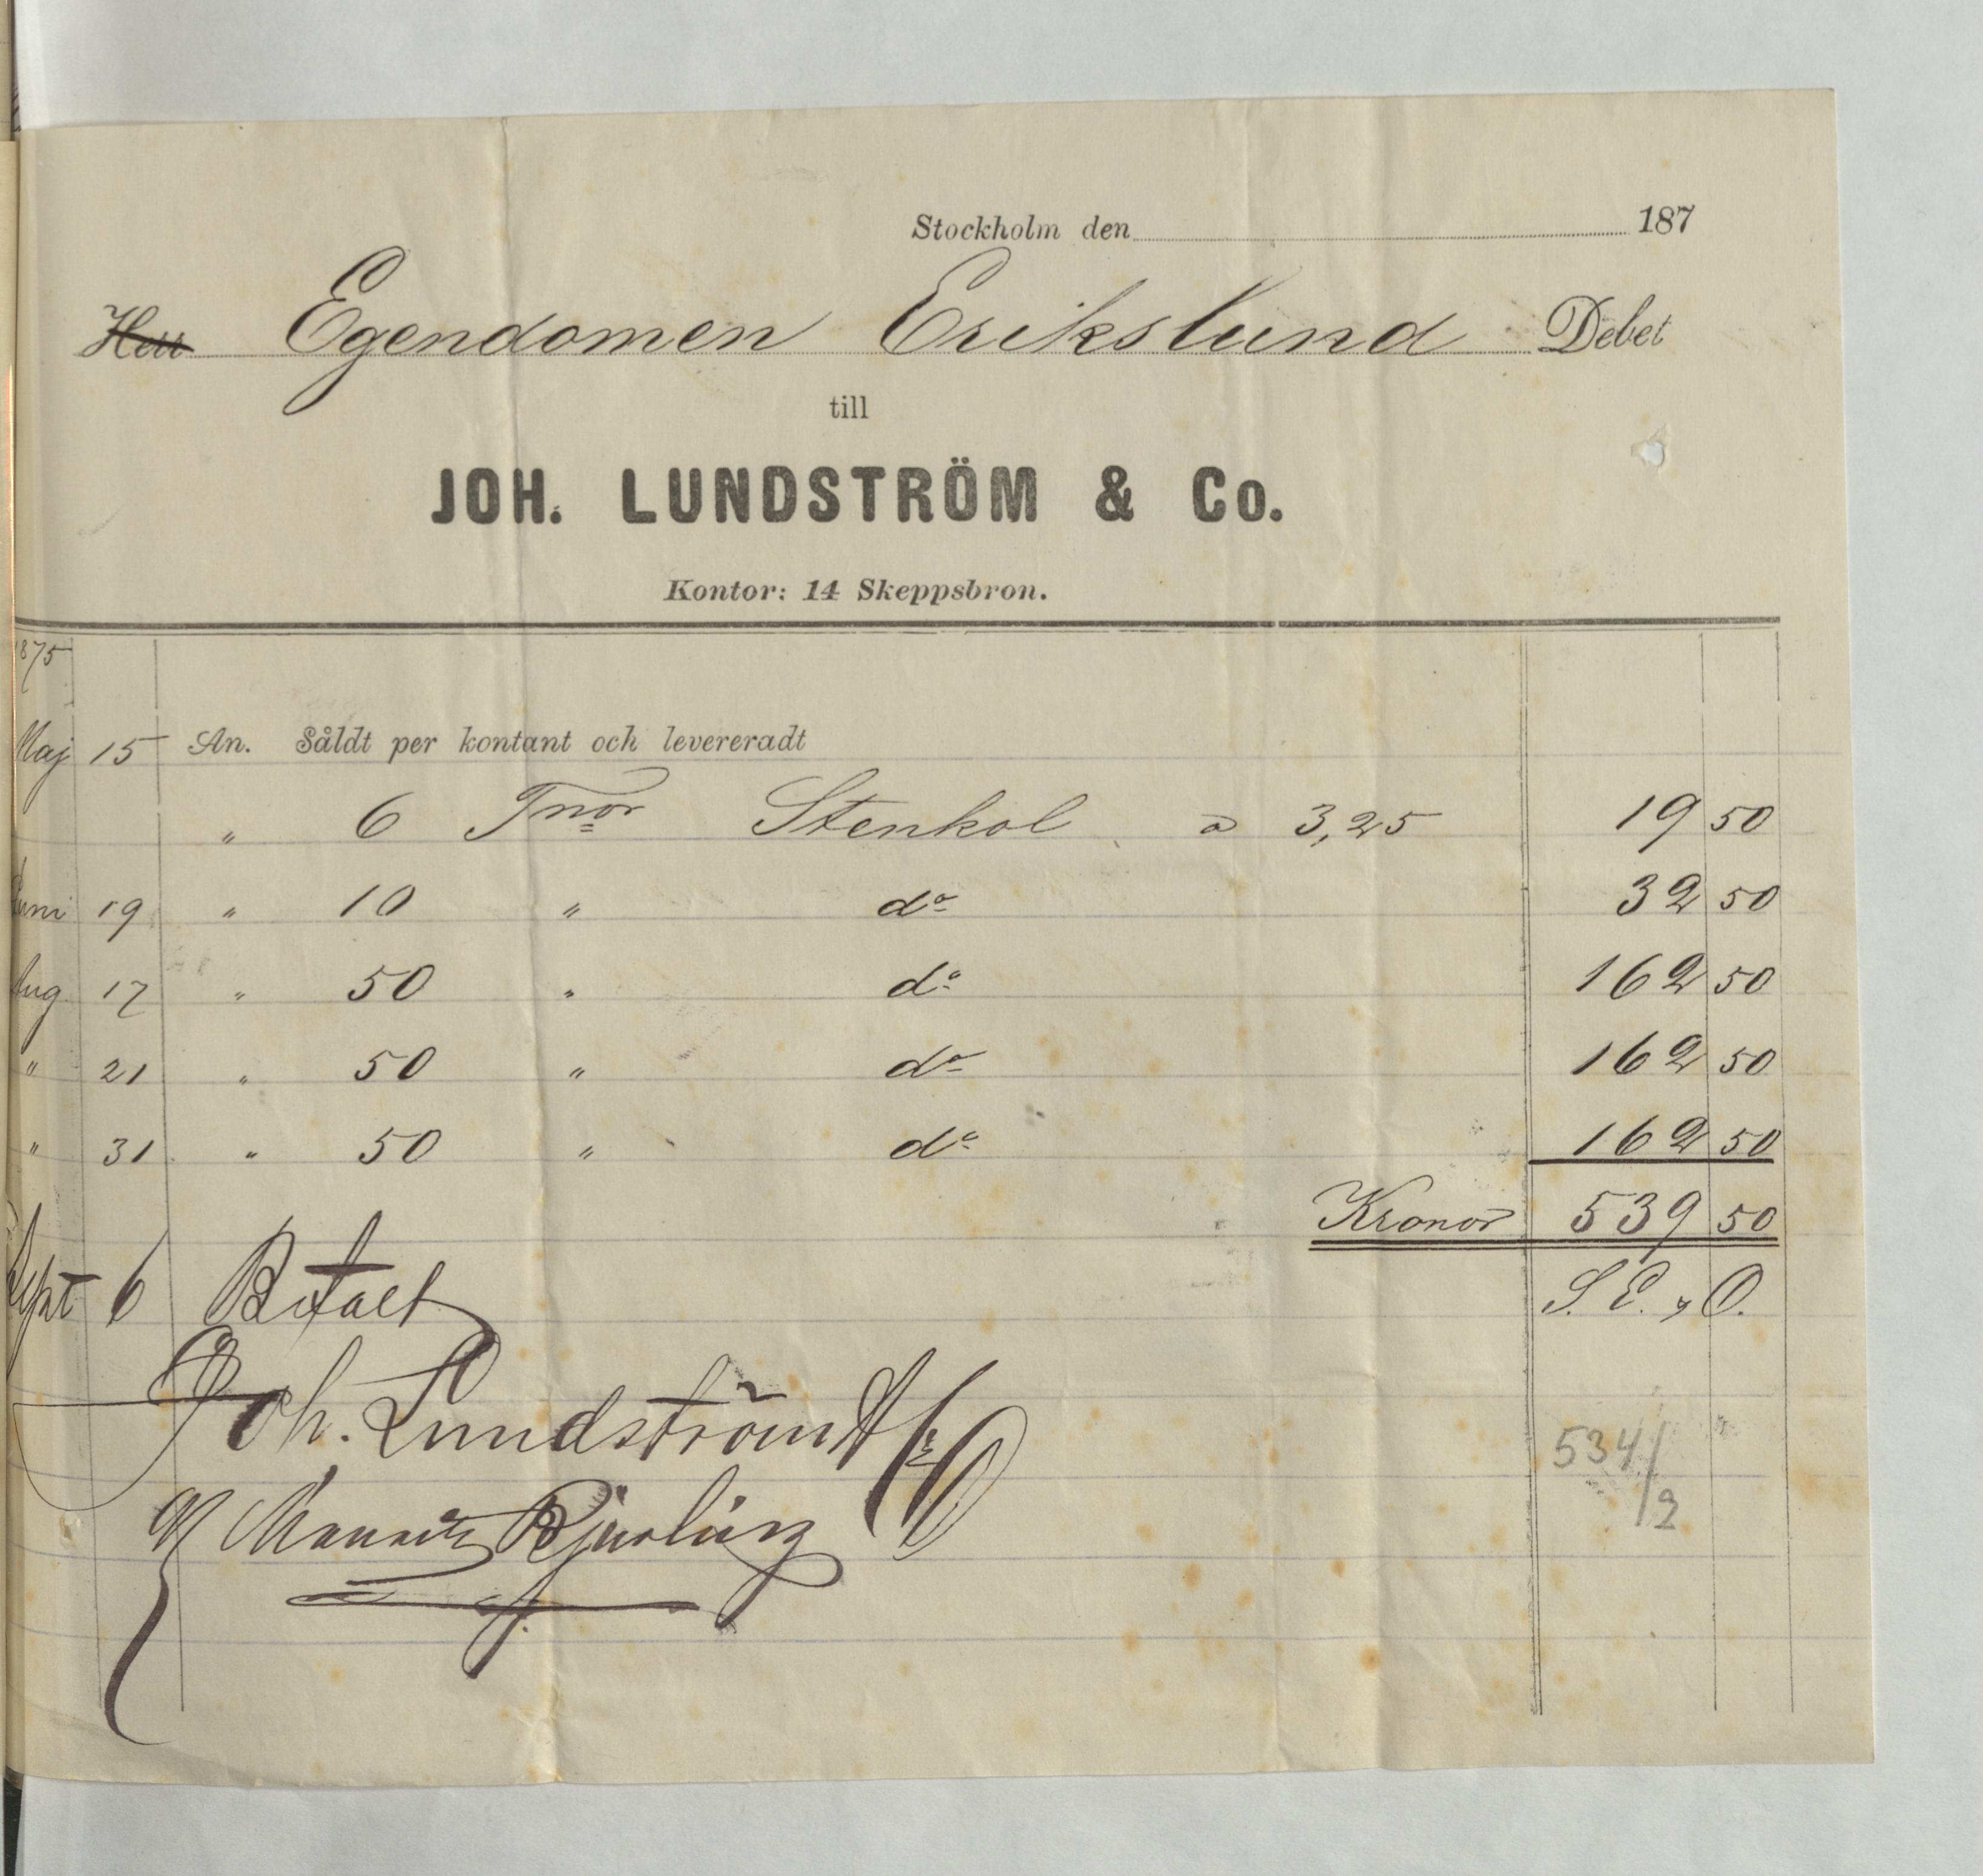 Stockholm den 187
Herr Egendomen Erikslund Debet
till
JOH. LUNDSTRÖM & Co.
Kontor: 14 Skeppsbron.
1875
Maj 15 An. Såldt per kontant och levereradt
" 6 Tnor Stenkol a 3,25 19 50
Juni 19 " 10 " do 32 50
Aug 17 " 50 " do 162 50
" 21 " 50 " do 162 50
" 31 " 50 " do 162 50
Kronor 539 50
S. E. & O.
Sept 6 Betalt
Joh. Lundström & Co
534/2